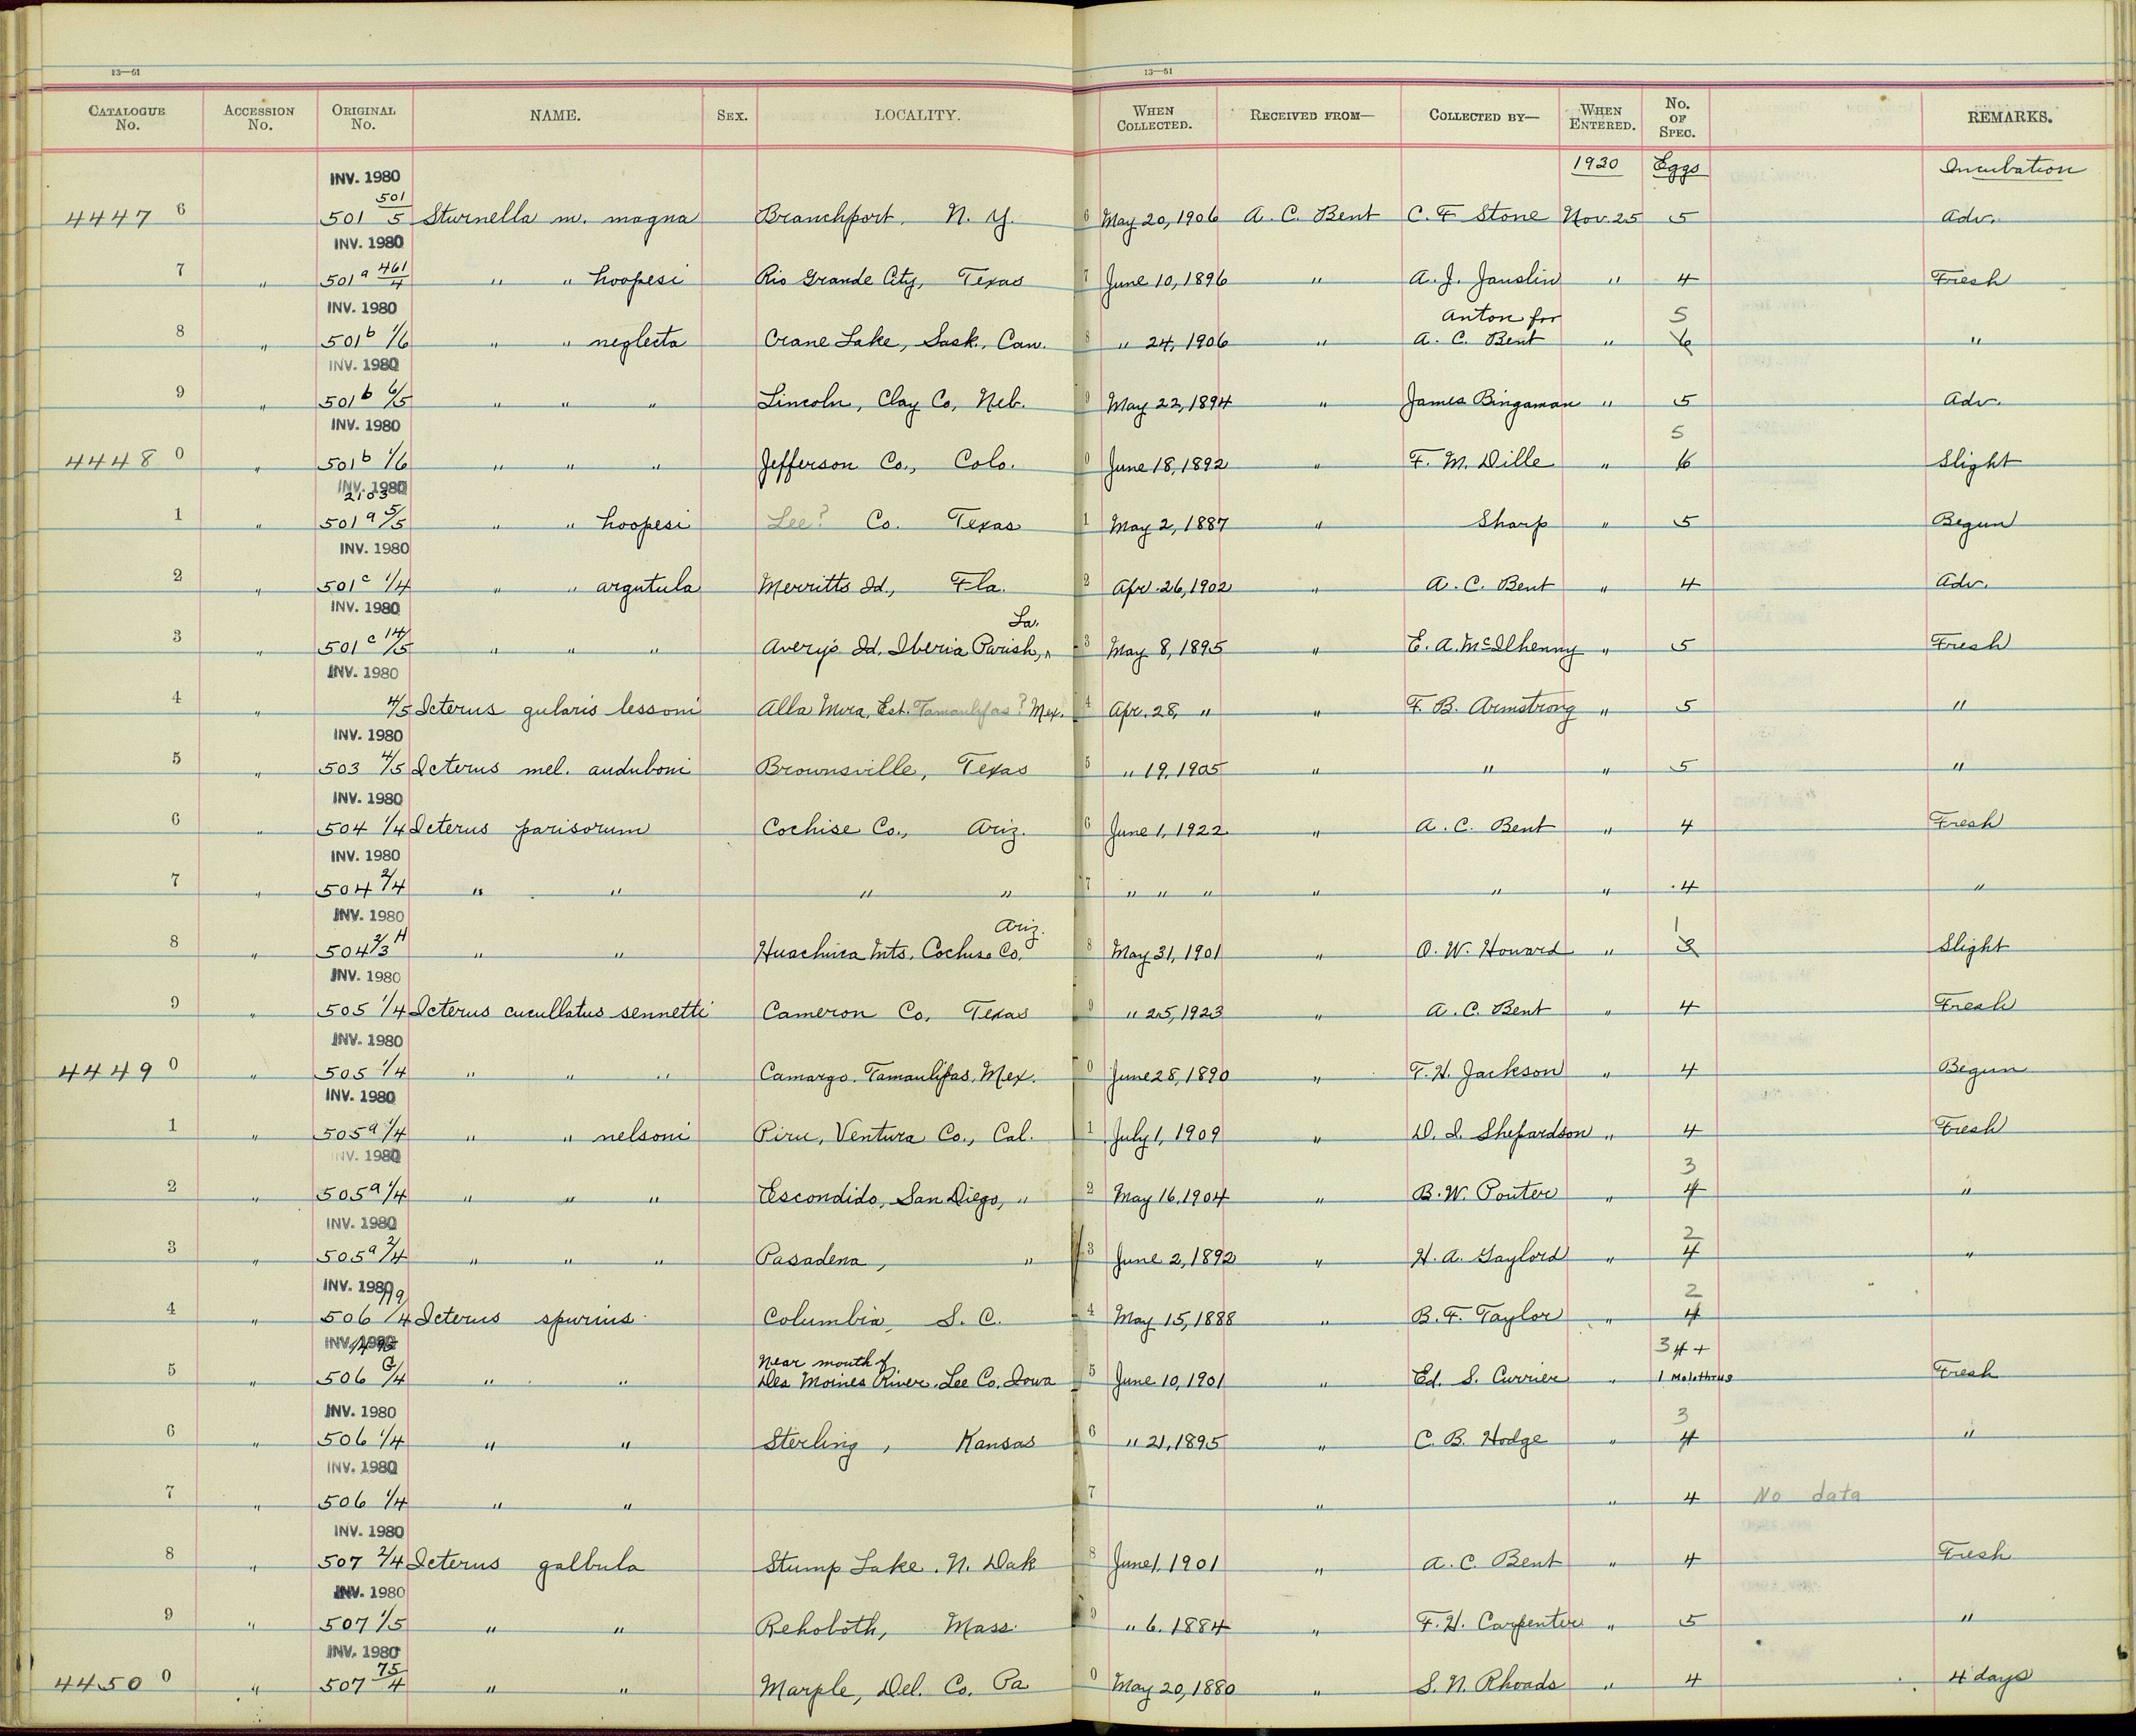 13—51 13—51
CATALOGUE No. ACCESSION No. ORIGINAL No. NAME. SEX. LOCALITY. WHEN COLLECTED. RECEIVED FROM— COLLECTED BY— WHEN ENTERED. No. OF SPEC. REMARKS.
INV. 1980 1930 Eggs Incubation
4447 6 501 501/5 Sturnella m. magna Branchport, N. Y. 6 May 20, 1906 A. C. Bent C. F. Stone Nov. 25 5 Adv.
INV. 1980
7 " 501a 461/4 " " hoopesi Rio Grande City, Texas 7 June 10, 1896 " A. J. " 4 Fresh
INV. 1980 Anton for 5
8 " 501b 1/6 " " neglecta Crane Lake, Sask. Can. 8 " 24, 1906 " A. C. Bent " 6 "
INV. 1980
9 " 501b 6/5 " " " Lincoln, Clay Co, Neb. 9 May 22, 1894 " James Bingaman " 5 Adv.
INV. 1980 5
4448 0 " 501b 1/6 " " " Jefferson Co., Colo. 0 June 18, 1892 " F. M. Dille " 6 Slight
INV. 1980
2103
1 " 501a 5/5 " " hoopesi Lee? Co. Texas 1 May 2, 1887 " Sharp " 5 Begun
INV. 1980
2 " 501c 1/4 " " argutula Merritts Id., Fla. 2 Apr. 26, 1902 " A. C. Bent " 4 Adv.
INV. 1980 La.
3 " 501c 14/5 " " " Avery's Id. Iberia Parish, ^ 3 May 8, 1895 " E. A. McIlhenny " 5 Fresh
INV. 1980
4 " 4/5 Icterus gularis lessoni Alta Mira, Est. Tamaulipas? Mex. 4 Apr. 28, " " F. B. Armstrong " 5 "
INV. 1980
5 " 503 4/5 Icterus mel. auduboni Brownsville, Texas 5 " 19, 1905 " " " 5 "
INV. 1980
6 " 504 1/4 Icterus parisorum Cochise Co., Ariz. 6 June 1, 1922 " A. C. Bent " 4 Fresh
INV. 1980
7 " 504 2/4 " " " " 7 " " " " " " 4 "
INV. 1980 Ariz. 1
8 " 504 2/3 H " " Huachuca Mts, Cochise Co, 8 May 31, 1901 " O. W. Howard " 3 Slight
INV. 1980
9 " 505 1/4 Icterus cucullatus sennetti Cameron Co, Texas 9 " 25, 1923 " A. C. Bent " 4 Fresh
INV. 1980
4449 0 " 505 1/4 " " " Camargo. Tamaulipas, Mex. 0 June 28, 1890 " T. H. Jackson " 4 Begun
INV. 1980
1 " 505a 1/4 " " nelsoni Piru, Ventura Co., Cal. 1 July 1, 1909 " D. I. Shepardson " 4 Fresh
INV. 1980 3
2 " 505a 1/4 " " " Escondido, San Diego, " 2 May 16, 1904 " B. W. " 4 "
INV. 1980 2
3 " 505a 2/4 " " " Pasadena, " 3 June 2, 1892 " H. A. Gaylord " 4 "
INV. 1980 2
4 " 506 119/4 Icterus spurius Columbia, S. C. 4 May 15, 1888 " B. F. Taylor " 4
INV. 1980 Near mouth of 3 4 +
5 " 506 G/4 " " Des Moines River, Lee Co, Iowa 5 June 10, 1901 " Ed. S. Currier " 1 Molothrus Fresh
INV. 1980 3
6 " 506 1/4 " " Sterling, Kansas 6 " 21, 1895 " C. B. Hodge " 4 "
INV. 1980
7 " 506 1/4 " " 7 " " 4 No data
INV. 1980
8 " 507 2/4 Icterus galbula Stump Lake. N. Dak 8 June 1, 1901 " A. C. Bent " 4 Fresh
INV. 1980
9 " 507 1/5 " " Rehoboth, Mass. 9 " 6. 1884 " F. H. Carpenter " 5 "
INV. 1980
4450 0 " 507 75/4 " " Marple, Del. Co. Pa 0 May 20, 1880 " S. N. Rhoads " 4 4 days